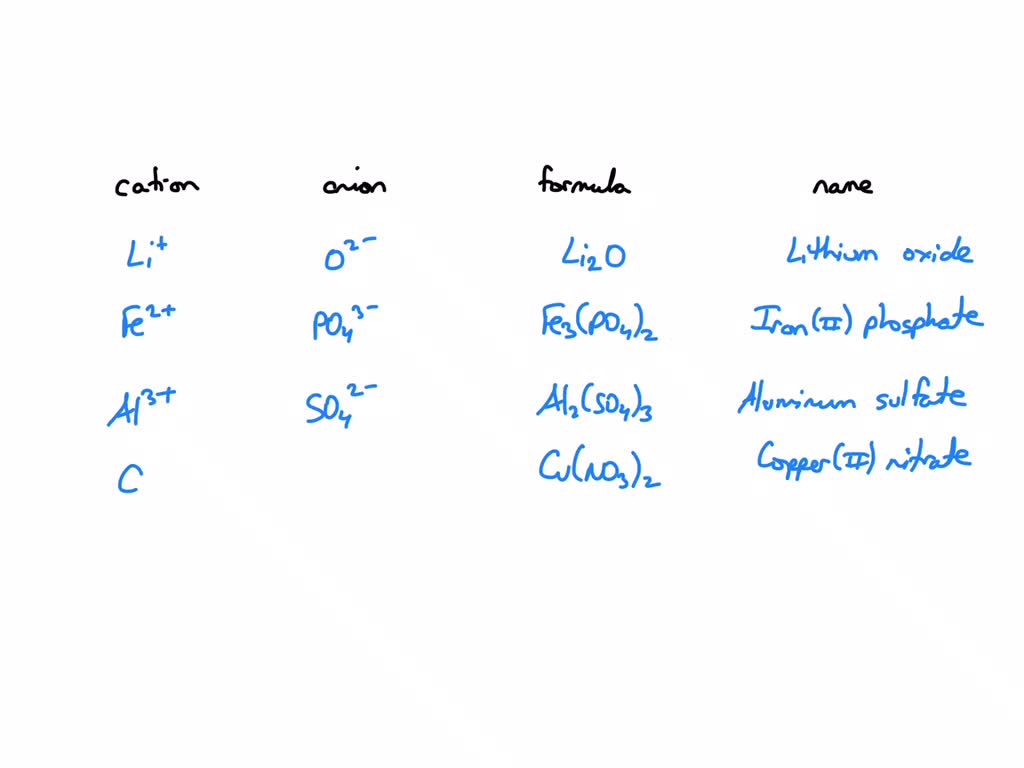 cation anion formula name
Li⁺ O²⁻ Li₂O Lithium oxide
Fe²⁺ PO₄³⁻ Fe₃(PO₄)₂ Iron(II) phosphate
Al³⁺ SO₄²⁻ Al₂(SO₄)₃ Aluminum sulfate
C Cu(NO₃)₂ Copper(II) nitrate